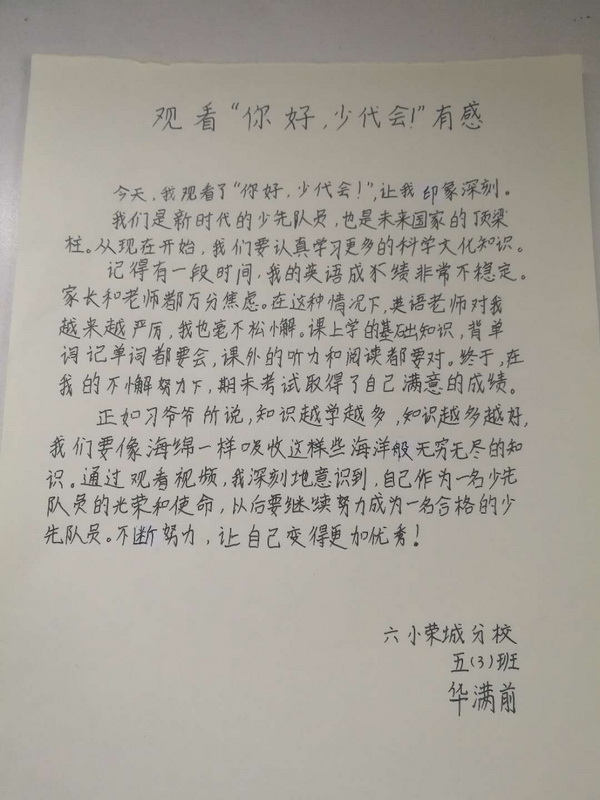 观看“你好，少代会！”有感
今天，我观看了“你好，少代会！”，让我印象深刻。
我们是新时代的少先队员，也是未来国家的顶梁
柱。从现在开始，我们要认真学习更多的科学文化知识。
记得有一段时间，我的英语成绩非常不稳定。
家长和老师都万分焦虑。在这种情况下，英语老师对我
越来越严厉，我也毫不松懈。课上学的基础知识，背单
词记单词都要会，课外的听力和阅读都要对。终于，在
我的不懈努力下，期末考试取得了自己满意的成绩。
正如习爷爷所说，知识越学越多，知识越多越好，
我们要像海绵一样吸收这样些海洋般无穷无尽的知
识。通过观看视频，我深刻地意识到，自己作为一名少先
队员的光荣和使命，从后要继续努力成为一名合格的少
先队员。不断努力，让自己变得更加优秀！
六小荣城分校
五（3）班
华满前